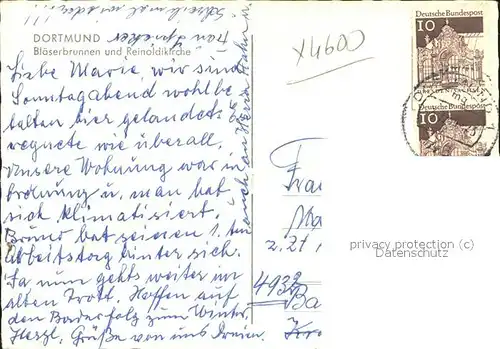 Schreib mal wieder!!!
Frau Sprecher
DORTMUND
Bläserbrunnen und Reinoldikirche
Liebe Marie, wir sind
Sonntagabend wohlbe
halten hier gelandet.
regnete wie überall.
Unsere Wohnung war in
Ordnung u. man hat
sich klimatisiert.
Bruno hat seinen 1.
Arbeitstag hinter sich.
Ja nun gehts weiter im
alten Trott. Hoffen auf
den Badeerfolg zum Winter.
Herzl. Grüße von uns Dreien.
auch an Herrn Hahn u.
X4690
Deutsche Bundespost
10
Deutsche Bundespost
10
Frau
Ma
z. Zt
4932
Ba
Kr
privacy protection (c)
Datenschutz